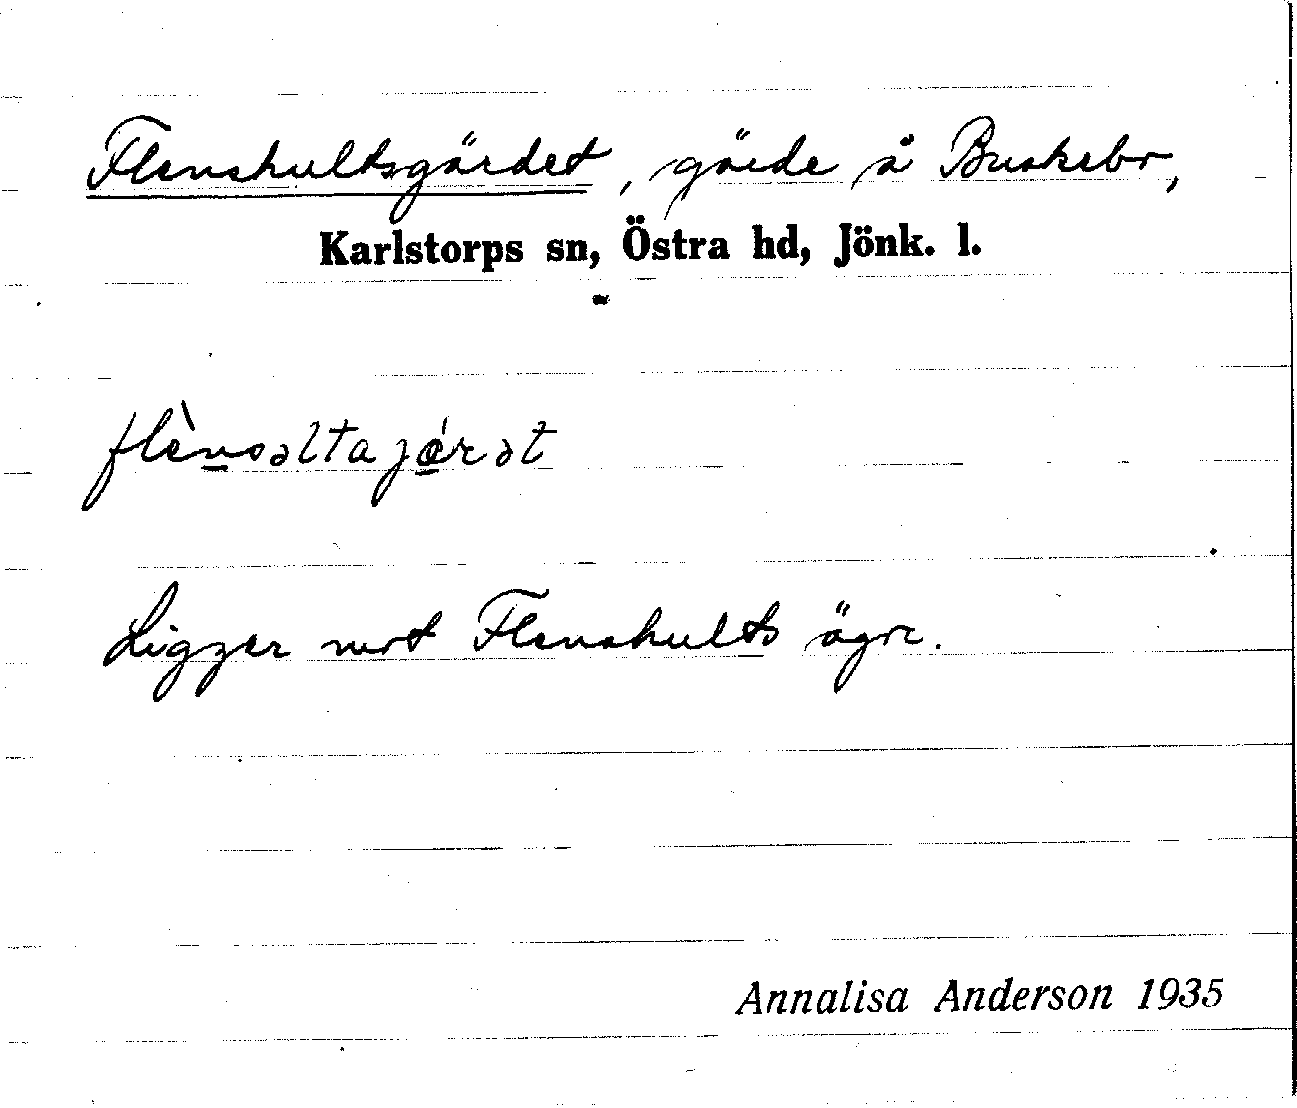 Flenshultsgärdet, gärde å Buskebo,
Karlstorps sn, Östra hd, Jönk. l.
Ligger mot Flenshults ägor.
Annalisa Anderson 1935